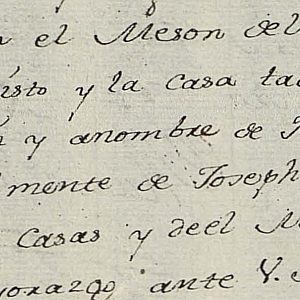 n el Meson del
isto y la Casa ta
y anombre de
mente de Joseph
Casas y deel M
yorazgo ante V.